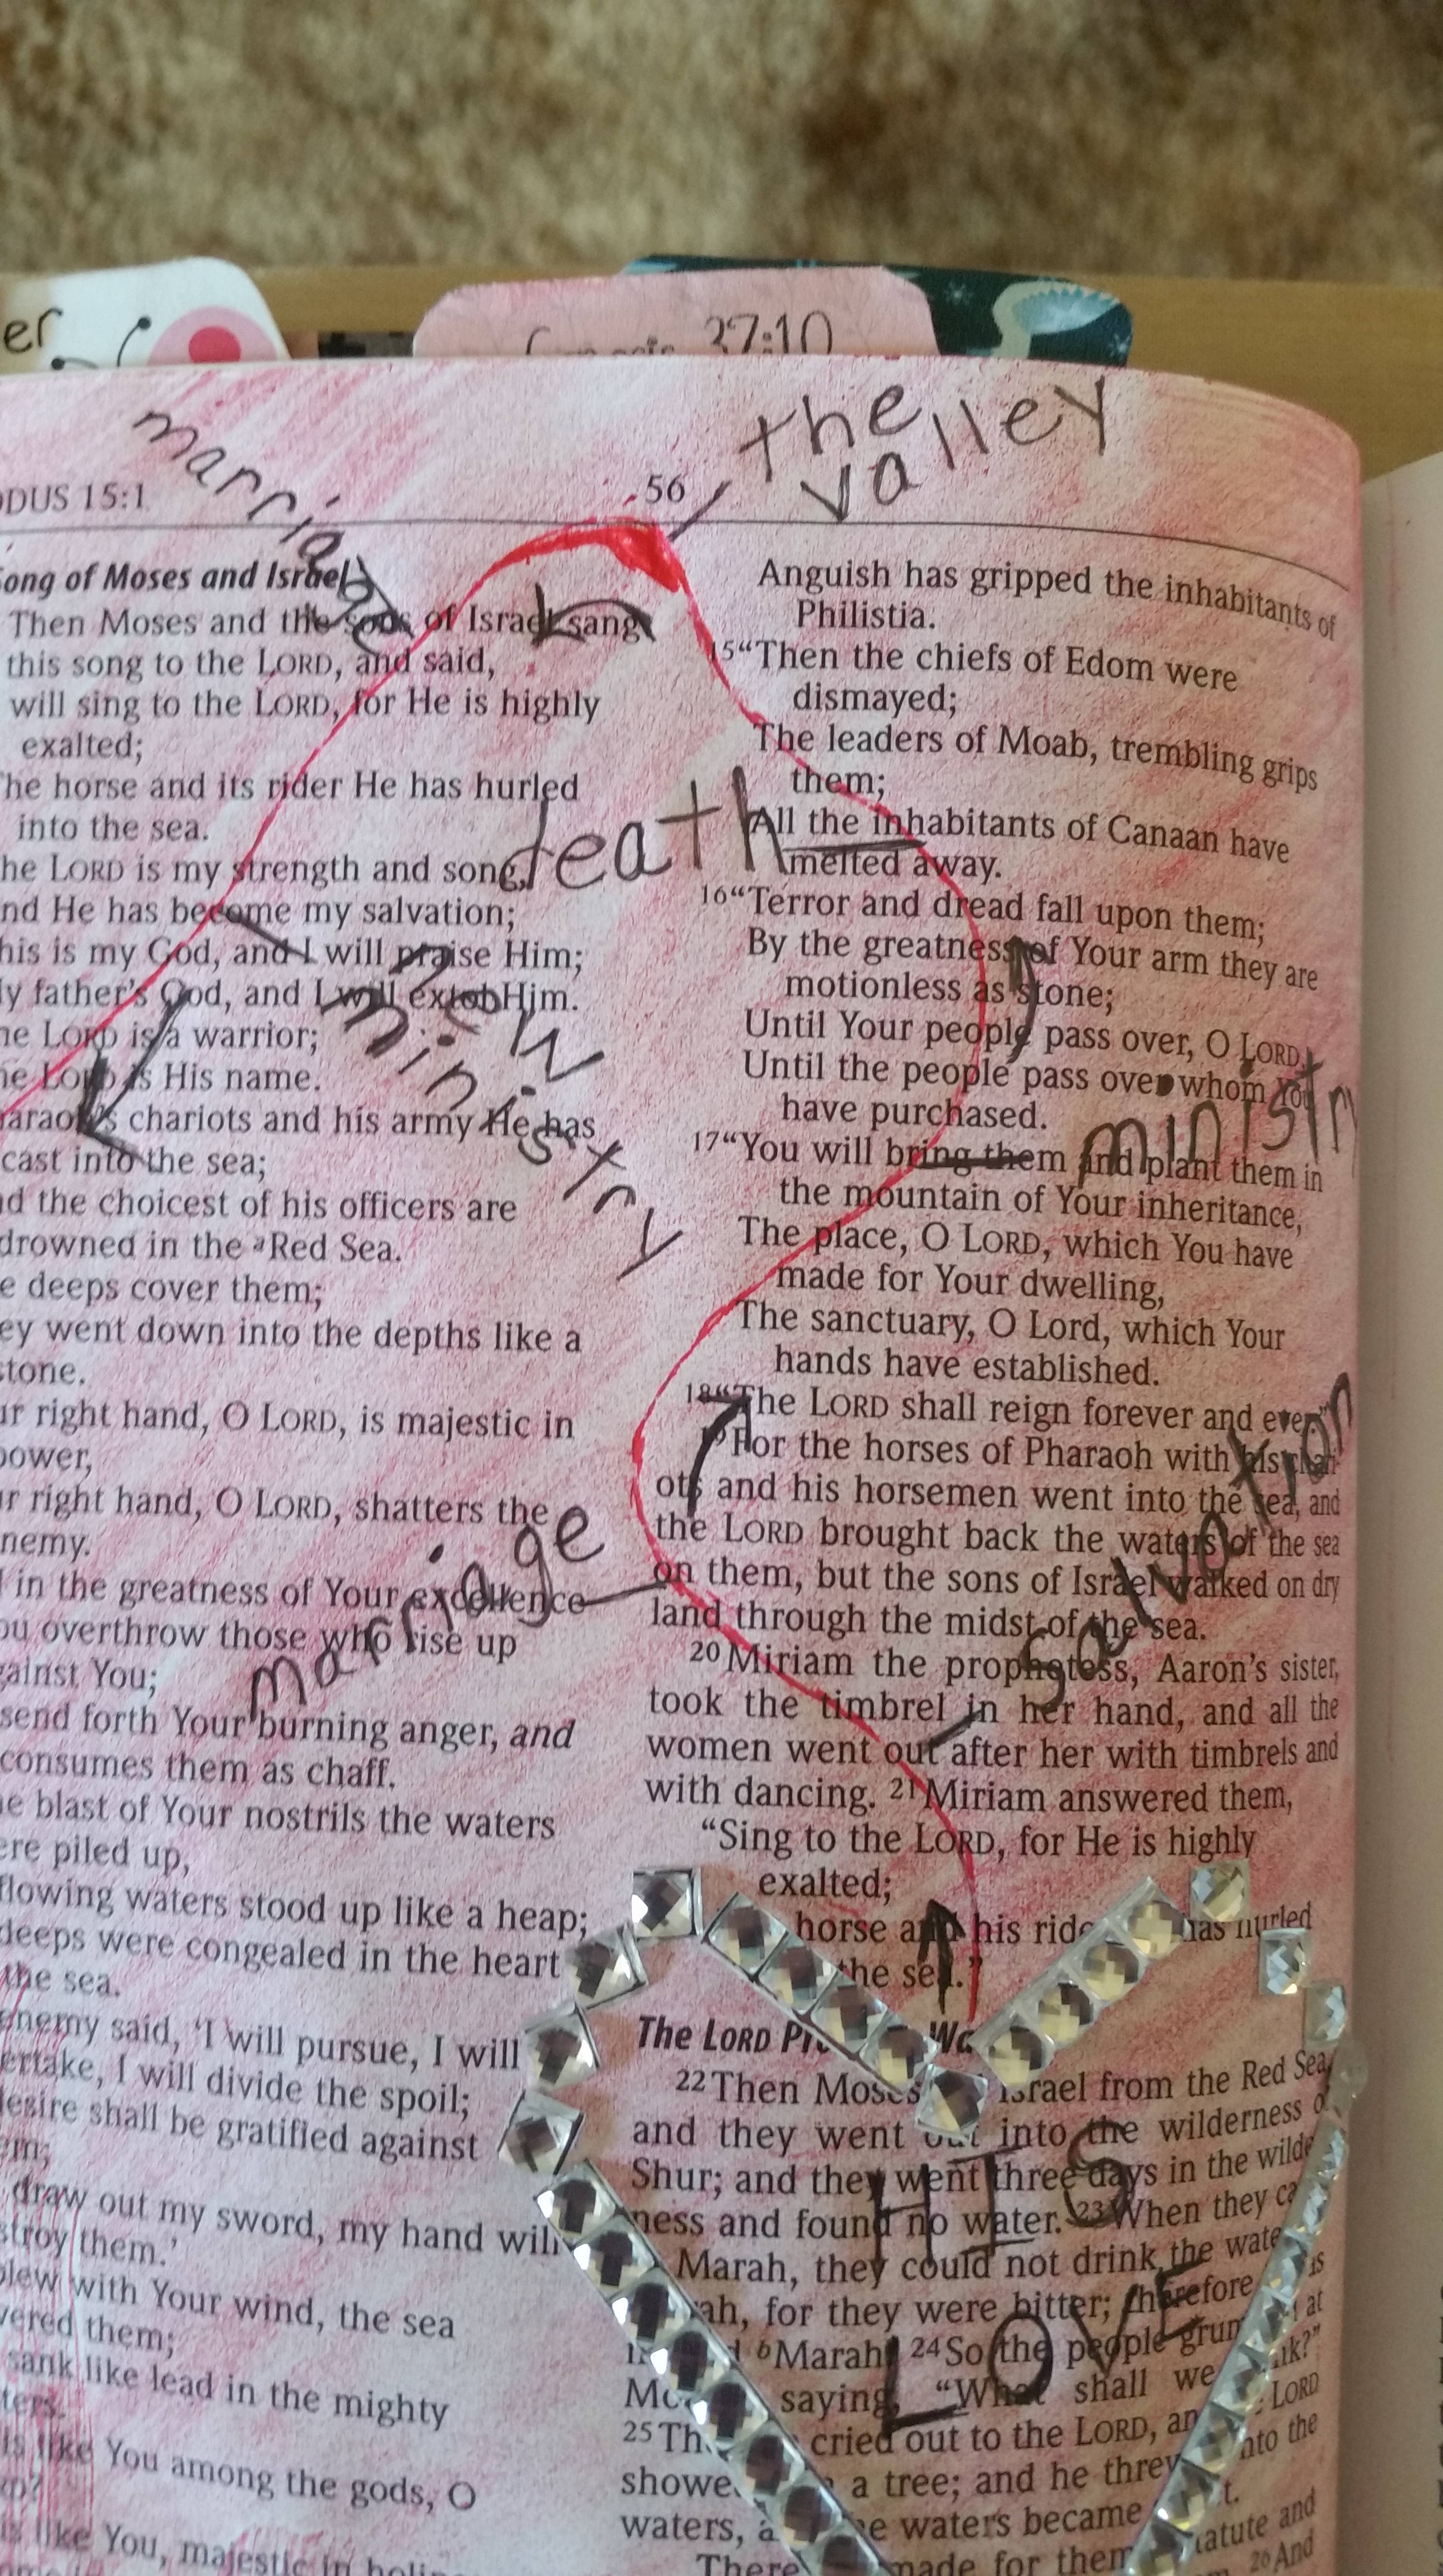 er
37:10
the
valley
marriage
ODUS 15:1
56
Song of Moses and Israel
Then Moses and the sons of Israel sang
this song to the LORD, and said,
will sing to the LORD, for He is highly
exalted;
The horse and its rider He has hurled
into the sea.
he LORD is my strength and song,
nd He has become my salvation;
his is my God, and I will praise Him;
ly father's God, and I will extol Him.
he LORD is a warrior;
he LORD is His name.
haraoh's chariots and his army He has
cast into the sea;
nd the choicest of his officers are
drowned in the aRed Sea.
e deeps cover them;
ey went down into the depths like a
stone.
ur right hand, O LORD, is majestic in
power,
ur right hand, O LORD, shatters the
nemy.
in the greatness of Your excellence
ou overthrow those who rise up
gainst You;
send forth Your burning anger, and
consumes them as chaff.
he blast of Your nostrils the waters
ere piled up,
flowing waters stood up like a heap;
deeps were congealed in the heart
the sea.
enemy said, 'I will pursue, I will
ertake, I will divide the spoil;
desire shall be gratified against
em;
draw out my sword, my hand will
stroy them.'
blew with Your wind, the sea
vered them;
sank like lead in the mighty
ters.
is like You among the gods, O
is like You, majestic in
death
new
ministry
marriage
Anguish has gripped the inhabitants of
Philistia.
15 "Then the chiefs of Edom were
dismayed;
The leaders of Moab, trembling grips
them;
All the inhabitants of Canaan have
melted away.
16 "Terror and dread fall upon them;
By the greatness of Your arm they are
motionless as stone;
Until Your people pass over, O LORD,
Until the people pass over whom You
have purchased.
17 "You will bring them and plant them in
the mountain of Your inheritance,
The place, O LORD, which You have
made for Your dwelling,
The sanctuary, O Lord, which Your
hands have established.
18 "The LORD shall reign forever and ever."
19 For the horses of Pharaoh with his chari-
ots and his horsemen went into the sea, and
the LORD brought back the waters of the sea
on them, but the sons of Israel walked on dry
land through the midst of the sea.
20 Miriam the prophetess, Aaron's sister,
took the timbrel in her hand, and all the
women went out after her with timbrels and
with dancing. 21 Miriam answered them,
"Sing to the LORD, for He is highly
exalted;
horse and his ride has hurled
the sea."
ministry
salvation
The LORD
22 Then Moses Israel from the Red Sea,
and they went out into the wilderness of
Shur; and they went three days in the wilde
ness and found no water. 23 When they ca
Marah, they could not drink the wate
ah, for they were bitter; therefore
bMarah. 24 So the people grum at
saying, "What shall we
25 cried out to the LORD, an LORD
showe a tree; and he threw into the
waters, a the waters became
There made for them statute and
26 And
HIS
LOVE